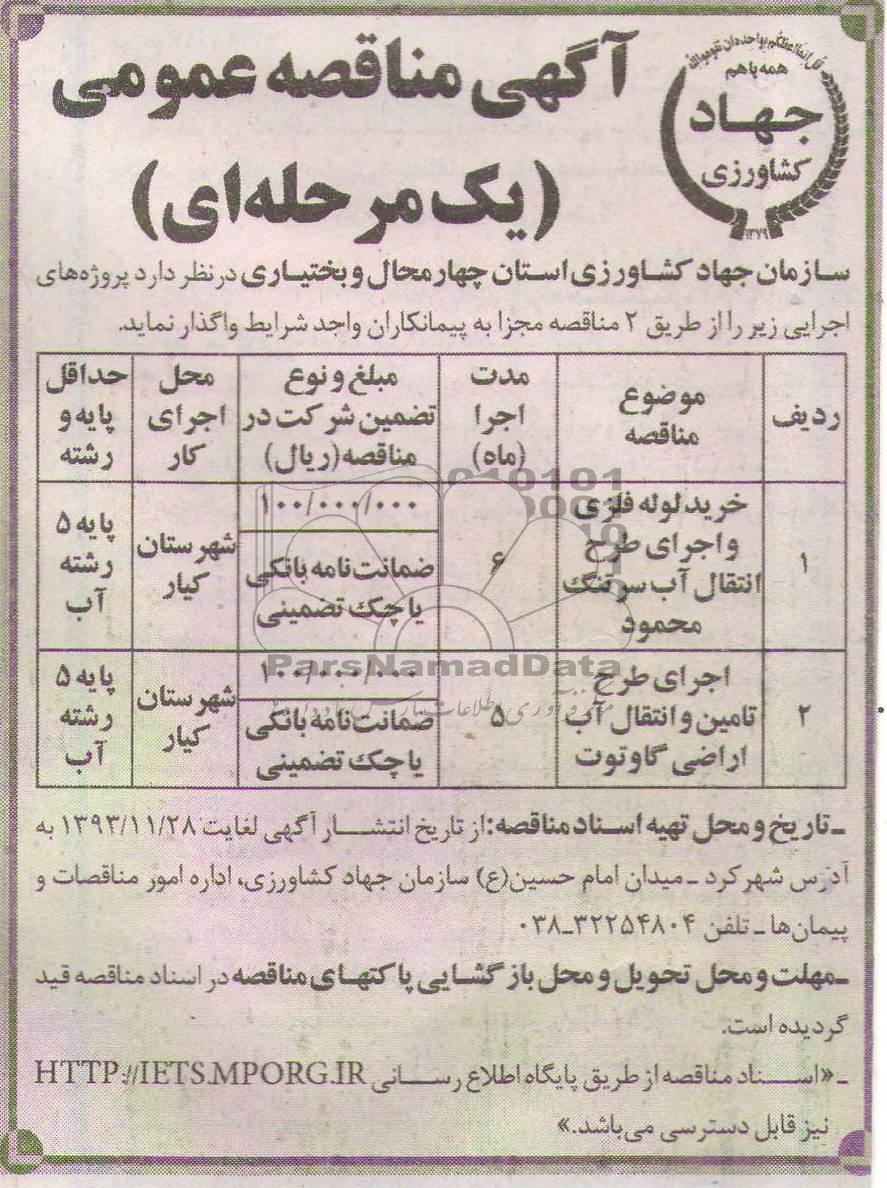 قل انما اعظکم بواحده ان تقوموا لله
همه با هم
جهاد
کشاورزی
۱۳۷۹
آگهی مناقصه عمومی
(یک مرحله‌ای)
سازمان جهاد کشاورزی استان چهارمحال و بختیاری در نظر دارد پروژه‌های
اجرایی زیر را از طریق ۲ مناقصه مجزا به پیمانکاران واجد شرایط واگذار نماید.
ردیف
موضوع
مناقصه
مدت
اجرا
(ماه)
مبلغ و نوع
تضمین شرکت در
مناقصه (ریال)
محل
اجرای
کار
حداقل
پایه و
رشته
۱
خرید لوله فلزی
و اجرای طرح
انتقال آب سرتنگ
محمود
۶
۱۰۰/۰۰۰/۰۰۰
ضمانت‌نامه بانکی
یا چک تضمینی
شهرستان
کیار
پایه ۵
رشته
آب
۲
اجرای طرح
تامین و انتقال آب
اراضی گاوتوت
۵
۱۰۰/۰۰۰/۰۰۰
ضمانت‌نامه بانکی
یا چک تضمینی
شهرستان
کیار
پایه ۵
رشته
آب
ParsNamadData
ـ تاریخ و محل تهیه اسناد مناقصه: از تاریخ انتشار آگهی لغایت ۱۳۹۳/۱۱/۲۸ به
آدرس شهرکرد ـ میدان امام حسین(ع) سازمان جهاد کشاورزی، اداره امور مناقصات و
پیمان‌ها ـ تلفن ۳۲۲۵۴۸۰۴ـ۰۳۸
ـ مهلت و محل تحویل و محل بازگشایی پاکتهای مناقصه در اسناد مناقصه قید
گردیده است.
ـ «اسناد مناقصه از طریق پایگاه اطلاع رسانی HTTP://IETS.MPORG.IR
نیز قابل دسترسی می‌باشد.»